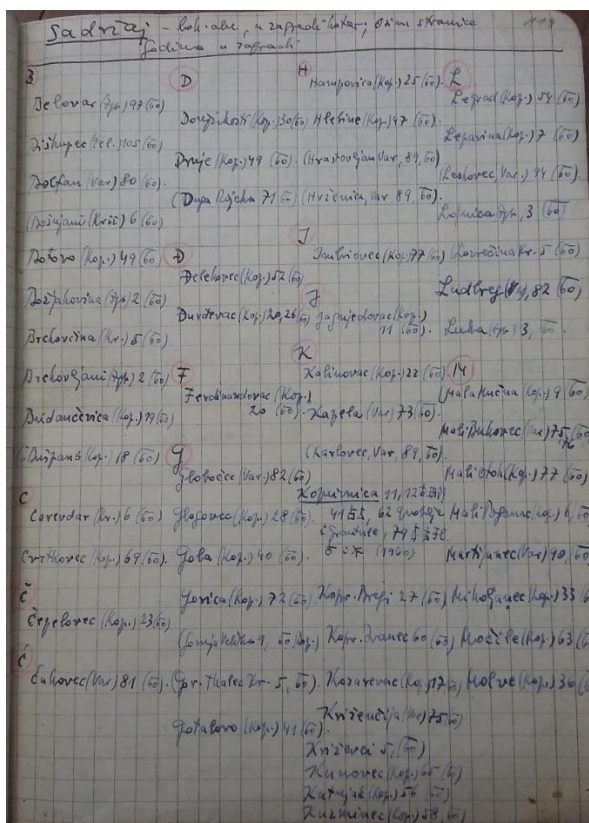 Sadržaj - lok. abc, u zagradi kotar, osim stranice 119
godina u zagradi
B
Bjelovar (Bj.) 97 (60)
Biškupec (Kop.) 105 (60)
Bolfan (Var) 80 (60).
(Bošnjani (Križ) 6 (60)
Botovo (Kop.) 49 (60)
Božjakovina (Bj.) 2 (60)
Brckovčina (Kr.) 5 (60)
Brckovljani (Bj.) 2 (60)
Budančevica (Kop.) 19 (60)
(Kop.) 18 (60)
C
Carevdar (Kr.) 6 (60)
Cvitkovec (Kop.) 69 (60).
Č
Čepelovec (Kop.) 23 (60)
Ć
Ćukovec (Var) 81 (60).
D
(Kop.) 30 (60)
Drnje (Kop.) 49 (60).
(Duga Rijeka 71 (60)
Đ
Đelekovec (Kop.) 52 (60)
Đurđevac (Kop.) 20, 26 (60)
F
Ferdinandovac (Kop.)
20 (60).
G
Globočec (Var.) 82 (60)
Glogovec (Kop.) 28 (60).
Gola (Kop.) 40 (60).
Gorica (Kop.) 72 (60)
(Gornja Velika 9, 60, Kop.)
(Gor. Kr. 5, 60).
Gotalovo (Kop.) 41 (60).
H
Hampovica (Kop.) 25 (60).
Hlebine (Kop.) 47 (60).
(Hrastovljan Var, 89, 60)
(Hrženica, Var 89, 60).
I
Imbriovec (Kop.) 77 (60)
J
Jagnjedovac (Kop.)
11 (60).
K
Kalinovac (Kop.) 22 (60)
Kapela (Var) 73 (60).
(Karlovec, Var, 89, 60).
Koprivnica 11, 12
(1960)
Kopr. Bregi 27 (60)
Kopr. Ivanec 60 (60)
Kozarevac (Kop.) 17 (60)
Križančija (Var) 75 (60)
Križevci 5, (60)
Kunovec (Kop.) 65 (60)
Kutnjak (Kop.) 56 (60)
Kuzminec (Kop.) 58, (60)
L
Legrad (Kop.) 54 (60)
Lepavina (Kop.) 7 (60)
(Leskovec, Var.) 94 (60).
Lonica Bj., 3 (60)
(Lovrečina Kr. 5 (60)
Ludbreg 82 (60)
Luka (Bj.) 3, 60.
M
(Mala Mučna (Kop.) 9 (60)
Mali Bukovec (Var) 75,
Mali Otok (Kop.) 77 (60)
Mali Poganac (Kop.) 6, (60)
Martijanec (Var) 90, (60)
Mikoljanec (Kop.) 33 (6
Močile (Kop.) 63 (6
Molve (Kop.) 36 (6